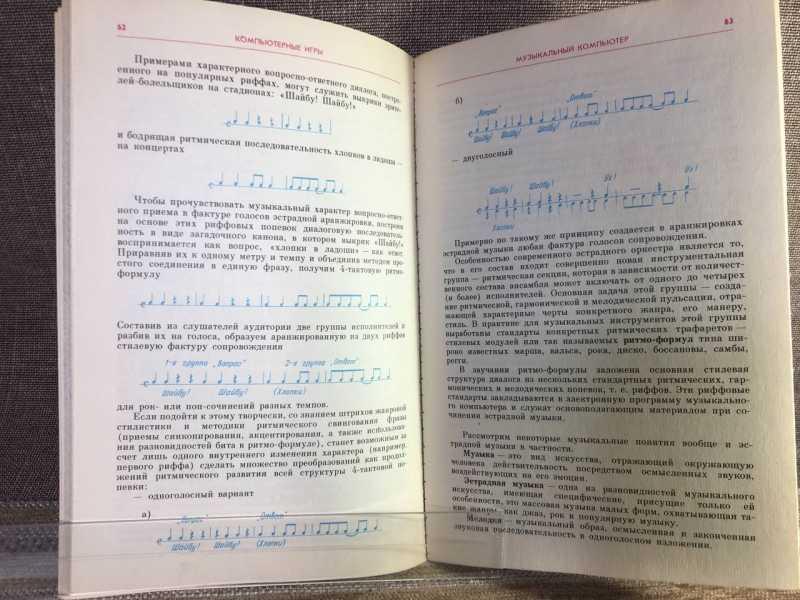 62
КОМПЬЮТЕРНЫЕ ИГРЫ
Примерами характерного вопросно-ответного диалога, постро-
енного на популярных риффах, могут служить выкрики зрите-
лей-болельщиков на стадионах: «Шайбу! Шайбу!»
и бодрящая ритмическая последовательность хлопков в ладоши —
на концертах
Чтобы прочувствовать музыкальный характер вопросно-ответ-
ного приема в фактуре голосов эстрадной аранжировки, построим
на основе этих риффовых попевок диалоговую последователь-
ность в виде загадочного канона, в котором выкрик «Шайбу!»
воспринимается как вопрос, «хлопки в ладоши» — как ответ.
Приравняв их к одному метру и темпу и объединив методом про-
стого соединения в единую фразу, получим 4-тактовую ритмо-
формулу
Составив из слушателей аудитории две группы исполнителей и
разбив их на голоса, образуем аранжированную из двух риффов
стилевую фактуру сопровождения
1-я группа „Вопрос" 2-я группа „Ответ"
Шайбу! Шайбу! (Хлопки)
для рок- или поп-сочинений разных темпов.
Если подойти к этому творчески, со знанием штрихов жанровой
стилистики и методики ритмического свингования фразы
(приемы синкопирования, акцентирования, а также использова-
ния разновидностей бита к ритмо-формуле), станет возможным за
счет лишь одного внутреннего изменения характера (например,
первого риффа) сделать множество преобразований как продол-
жений ритмического развития всей структуры 4-тактовой по-
певки:
— одноголосный вариант
а)
„Вопрос" „Ответ"
Шайбу! Шайбу! (Хлопки)
63
МУЗЫКАЛЬНЫЙ КОМПЬЮТЕР
б)
„Вопрос" „Ответ"
Шайбу! Шайбу! Шайбу! (Хлопки)
— двуголосный
Шайбу! Шайбу! Ух! Ух!
Хлопки
Примерно по такому же принципу создается в аранжировках
эстрадной музыки любая фактура голосов сопровождения.
Особенностью современного эстрадного оркестра является то,
что в его состав входит совершенно новая инструментальная
группа — ритмическая секция, которая в зависимости от количест-
венного состава ансамбля может включать от одного до четырех
(и более) исполнителей. Основная задача этой группы — созда-
ние ритмической, гармонической и мелодической пульсации, отра-
жающей характерные черты конкретного жанра, его манеру,
стиль. В практике для музыкальных инструментов этой группы
выработаны стандарты конкретных ритмических трафаретов —
стилевых модулей или так называемых ритмо-формул типа ши-
роко известных марша, вальса, рока, диско, боссановы, самбы,
регги.
В звучании ритмо-формулы заложена основная стилевая
структура диалога из нескольких стандартных ритмических, гар-
монических и мелодических попевок, т. е. риффов. Эти риффовые
стандарты закладываются в электронную программу музыкально-
го компьютера и служат основополагающим материалом при со-
чинении эстрадной музыки.
Рассмотрим некоторые музыкальные понятия вообще и эс-
традной музыки в частности.
Музыка — это вид искусства, отражающий окружающую
человека действительность посредством осмысленных звуков,
воздействующих на его эмоции.
Эстрадная музыка — одна из разновидностей музыкального
искусства, имеющая специфические, присущие только ей
особенности, это массовая музыка малых форм, охватывающая та-
кие жанры, как джаз, рок и популярную музыку.
Мелодия — музыкальный образ, осмысленная и законченная
звуковая последовательность в одноголосном изложении.